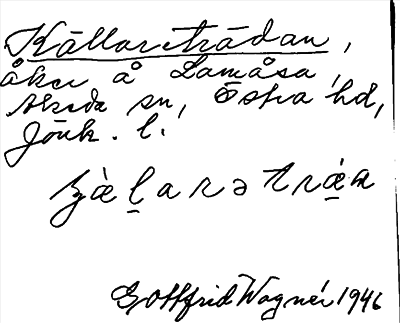 Källareträdan,
åker å Lamåsa,
Akeda sn, Östra hd,
Jönk. l.
Gottfrid Wagnér 1946